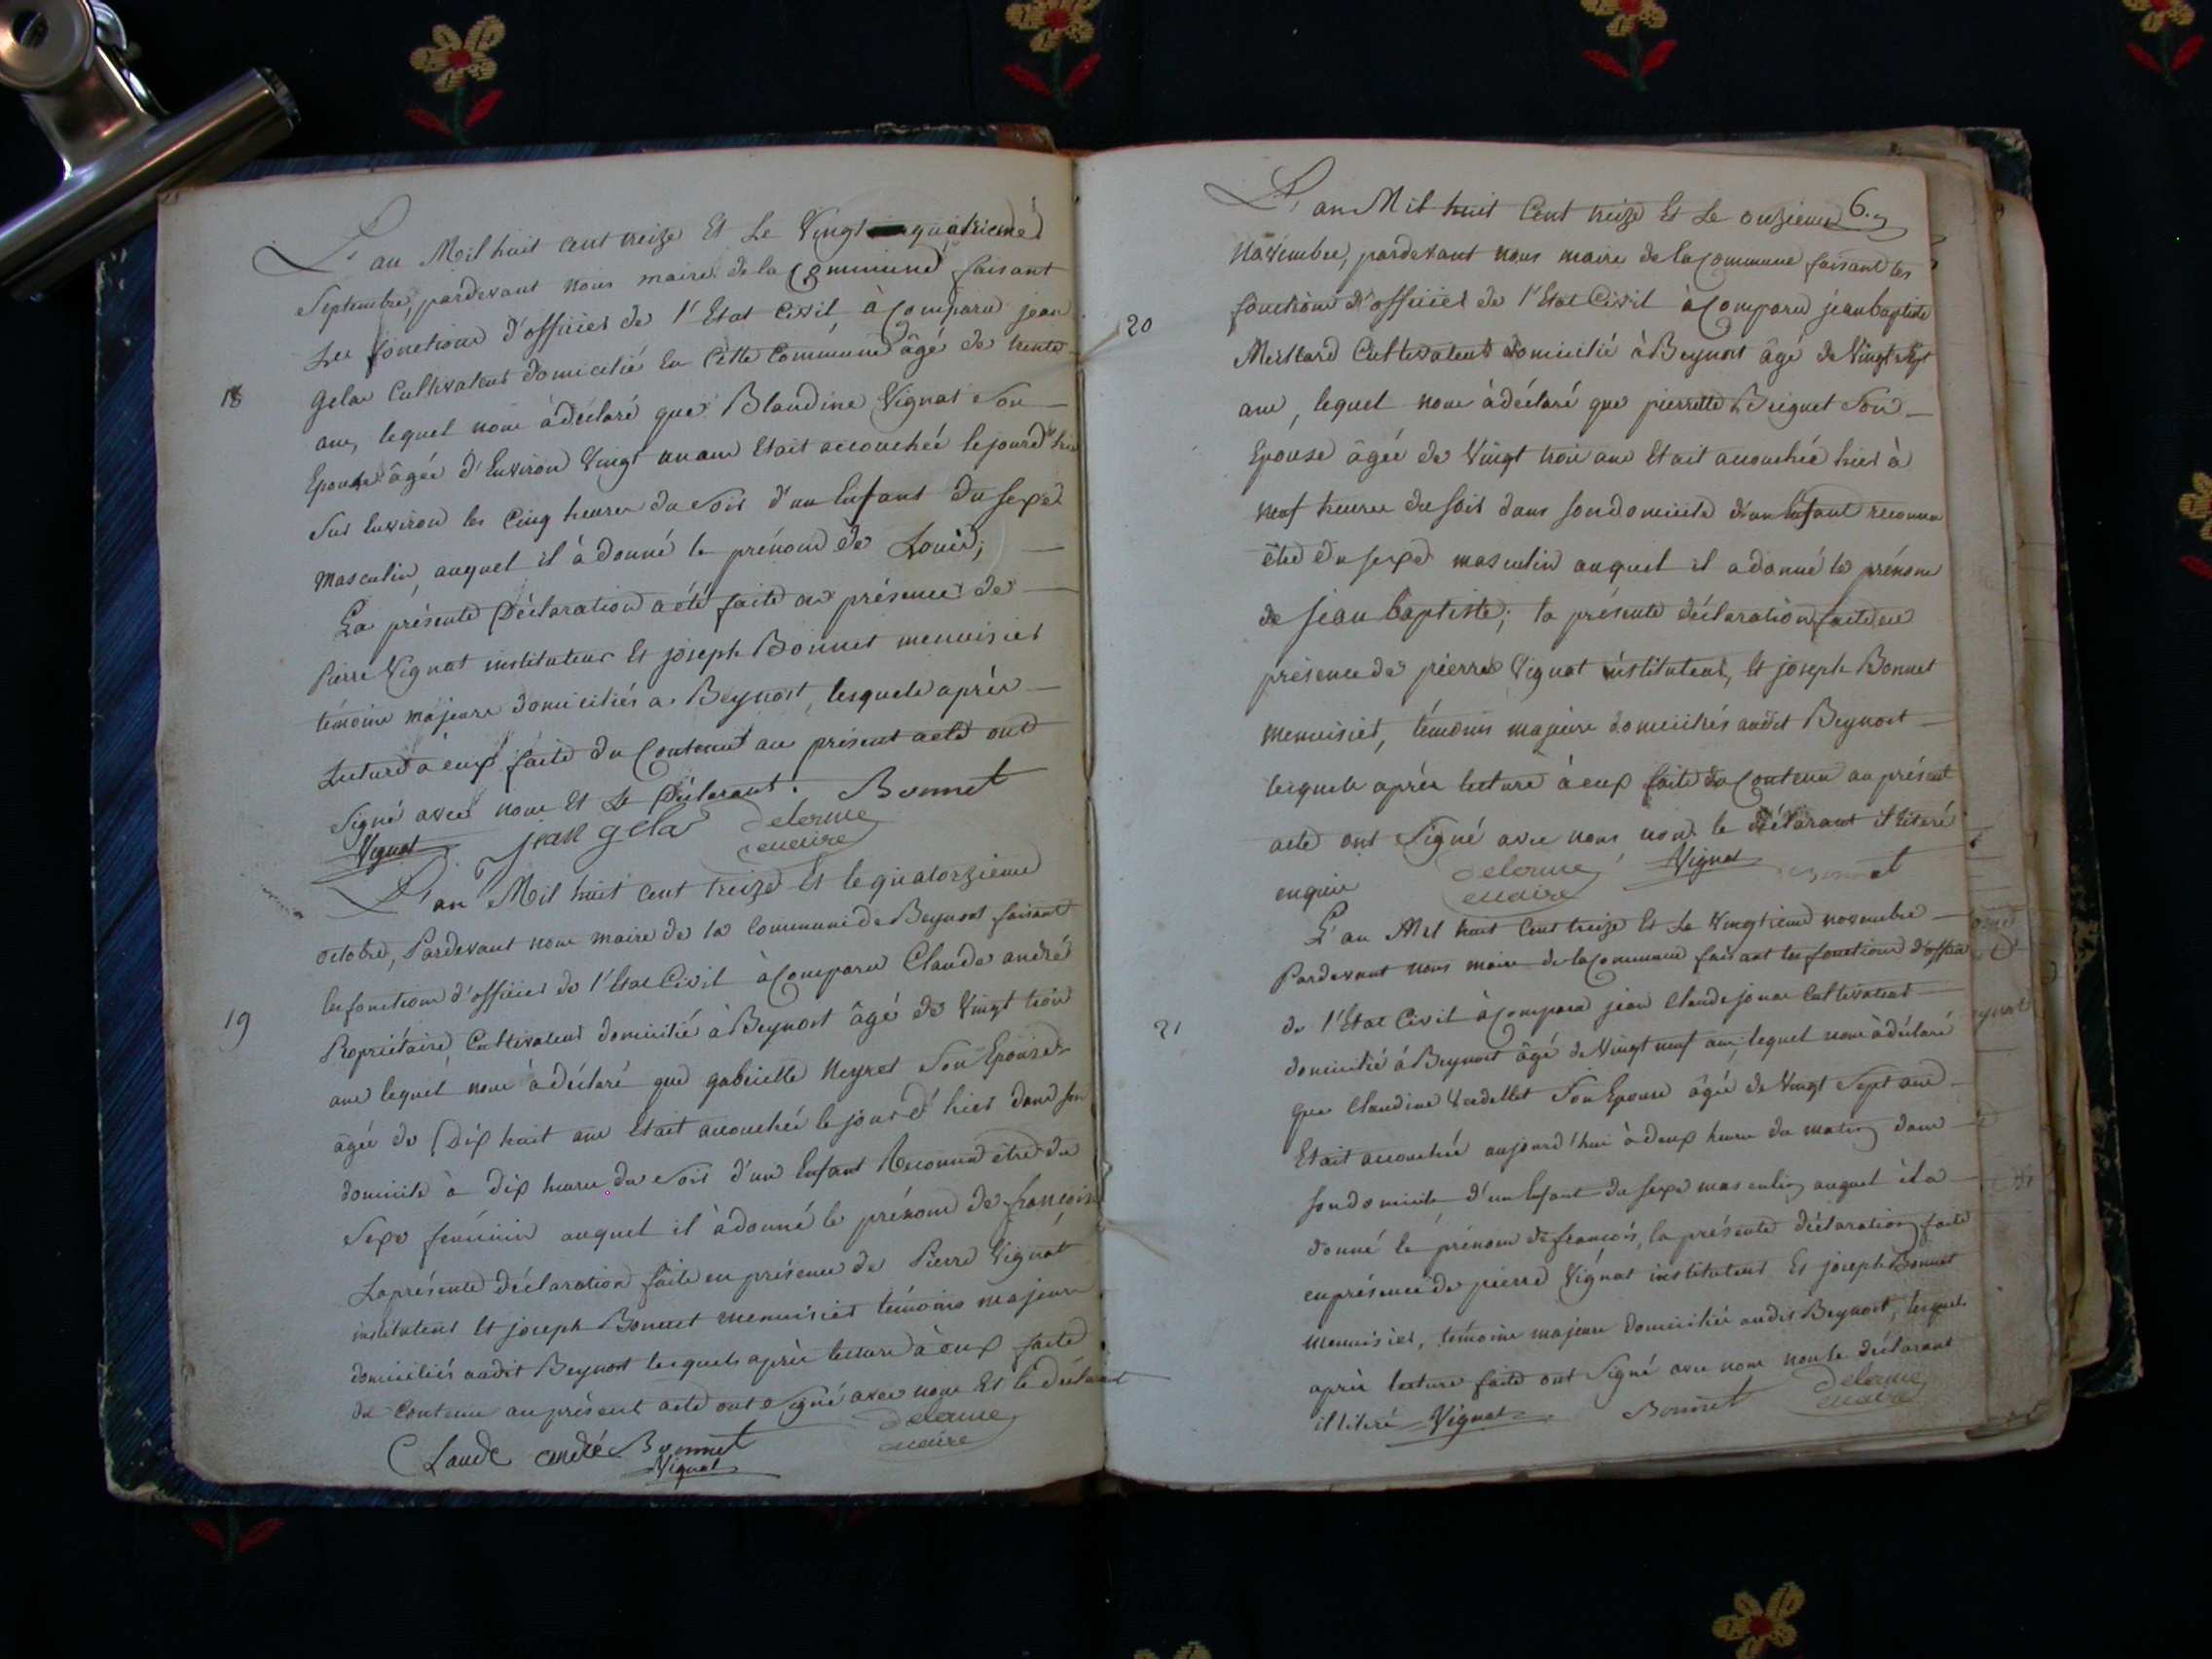 L'an Mil huit cent treize Et Le Vingt quatrieme
Septembre, pardevant nous maire de la Commune faisant
Les fonctions d'officier de l'Etat Civil à Comparu jean
18
gelas Cultivateur domicilié en Cette Commune âgé de trente
ans, lequel nous à déclaré que Blandine Vignat Son
Epouse âgée d'Environ Vingt un ans Etait accouchée lejourd'hier
Sur Environ les Cinq heures du Soir d'un Enfant du Sexe
masculin, auquel il à donné le prénom de Louis;
La présente Déclaration a été faite en présence de
Pierre Vignat instituteur Et joseph Bonnet menuisier
témoins majeurs domiciliés a Beynost, lesquels après
Lecture à eux faite du Contenu au présent acte ont
Signé avec nous Et Le Déclarant. Bonnet
Vignat Jean gela delorme
maire
L'an Mil huit cent treize Et le quatorzieme
octobre, Pardevant nous maire de la Commune de Beynost faisant
les fonctions d'officier de l'Etat Civil à Comparu Claude andré
19
Propriétaire Cultivateur domicilié à Beynost âgé de Vingt trois
ans lequel nous à déclaré que gabrielle Neyret Son Epouse
âgée de Dix huit ans Etait accouchée le jour d'hier dans son
domicile à dix heures du Soir d'un Enfant Reconnu être du
Sexe féminin auquel il à donné le prénom de françoise
La présente déclaration faite en présence de Pierre Vignat
instituteur Et joseph Bonnet menuisier témoins majeurs
domiciliés audit Beynost lesquels après lecture à eux faite
du Contenu au présent acte ont Signé avec nous Et le déclarant
Claude andré Bonnet delorme
Vignat maire
6.
L'an Mil huit Cent treize Et Le onzieme
Novembre, pardevant nous maire de la Commune faisant les
fonctions d'officier de l'Etat Civil à Comparu jean baptiste
20
Cultivateur domicilié à Beynost âgé de Vingt sept
ans, lequel nous à déclaré que pierrette Son
Epouse âgée de Vingt trois ans Etait accouchée hier à
neuf heures du soir dans son domicile d'un Enfant reconnu
être du sexe masculin auquel il a donné le prénom
de jean baptiste; la présente déclaration faite en
présence de pierre Vignat instituteur, Et joseph Bonnet
menuisier, témoins majeurs domiciliés audit Beynost
lesquels après lecture à eux faite du Contenu au présent
acte ont Signé avec nous non le déclarant illiteré
enquis delorme Vignat Bonnet
maire
L'an Mil huit Cent treize Et Le Vingtieme novembre
Pardevant nous maire de la Commune faisant les fonctions d'officier
21
de l'Etat Civil à Comparu jean Claude Cultivateur
domicilié à Beynost âgé de Vingt neuf ans, lequel nous à déclaré
que Claudine Son Epouse âgée de Vingt Sept ans
Etait accouchée aujourd'hui à deux heures du matin dans
son domicile, d'un Enfant du sexe masculin auquel il a
donné le prénom de françois, la présente déclaration faite
en présence de pierre Vignat instituteur Et joseph Bonnet
menuisier, témoins majeurs domiciliés audit Beynost, lesquels
après lecture faite ont Signé avec nous non le déclarant
illiteré Vignat Bonnet delorme
maire